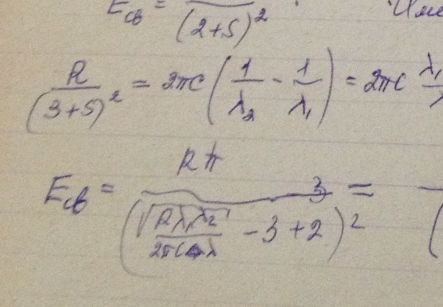 E_св = / (2+S)²
R / (3+S)² = 2πc (1/λ₂ - 1/λ₁) = 2πc λ₁
E_св = Rħ / (√(Rλ₁λ₂ / 2πcΔλ) - 3 + 2)² =